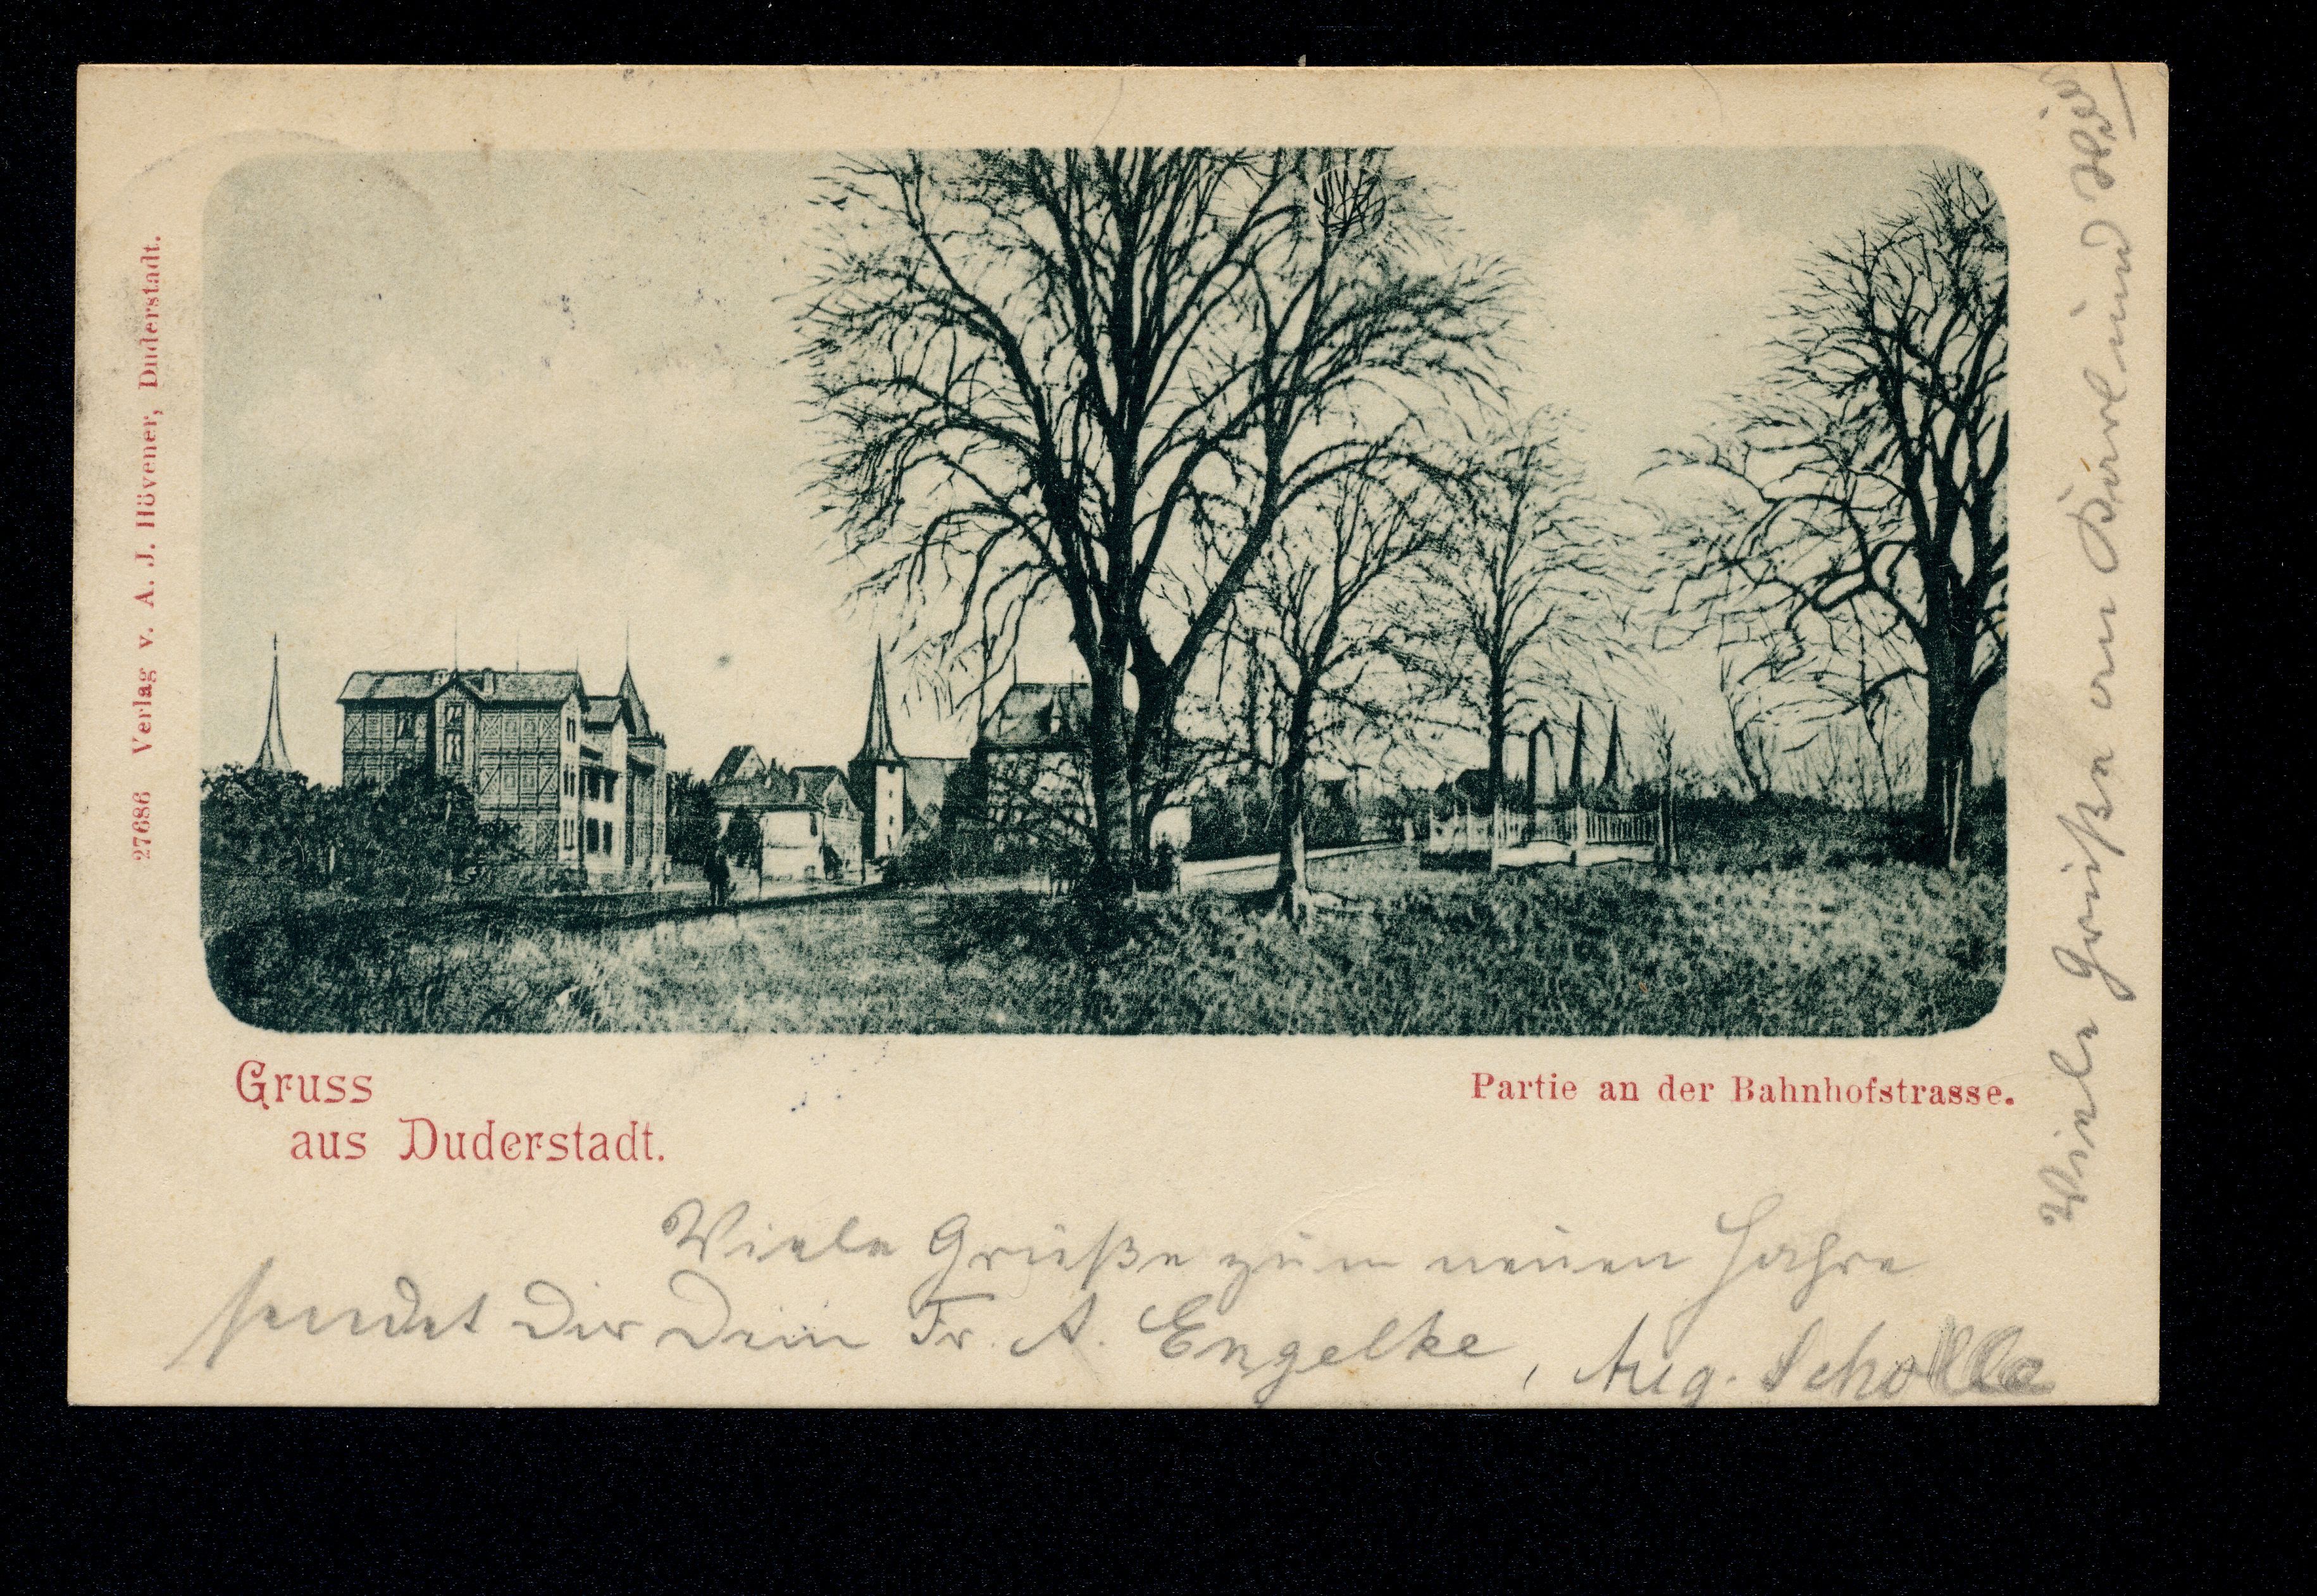 27686 Verlag v. A. J. Hövener, Duderstadt.
Gruss
aus Duderstadt.
Partie an der Bahnhofstrasse.
Viele Grüße zum neuen Jahre
sendet Dir Dein Fr. A. Engelke, Aug. Scholle
Viele Grüße an Karl und